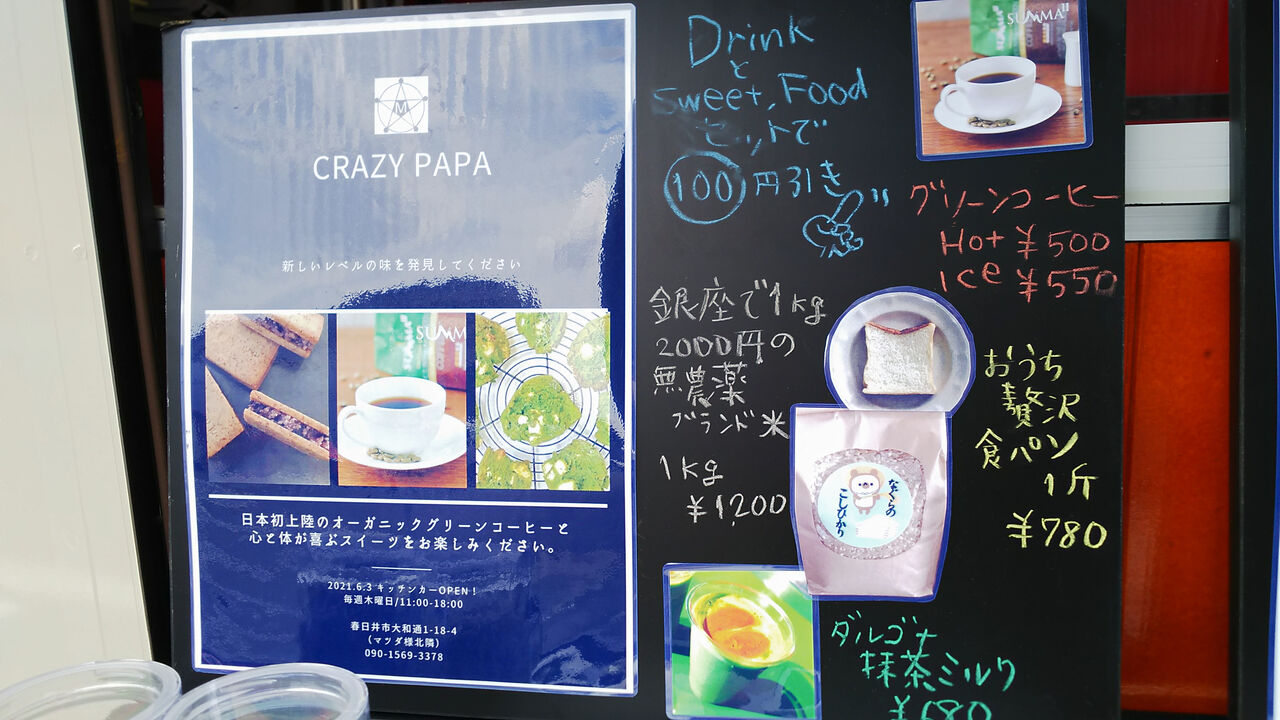 M
CRAZY PAPA
新しいレベルの味を発見してください
SUMM
日本初上陸のオーガニックグリーンコーヒーと
心と体が喜ぶスイーツをお楽しみください。
2021.6.3 キッチンカーOPEN！
毎週木曜日/11:00-18:00
春日井市大和通1-18-4
（マツダ様北隣）
090-1569-3378
Drink
と
Sweet,Food
セットで
100円引き
SUMMA
グリーンコーヒー
Hot ¥500
Ice ¥550
銀座で1kg
2000円の
無農薬
ブランド米
1kg
¥1,200
おうち
贅沢
食パン
1斤
¥780
なぐらの
こしひかり
ダルゴナ
抹茶ミルク
¥680